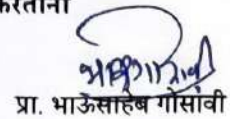 करताना
प्रा. भाऊसाहेब गोसावी